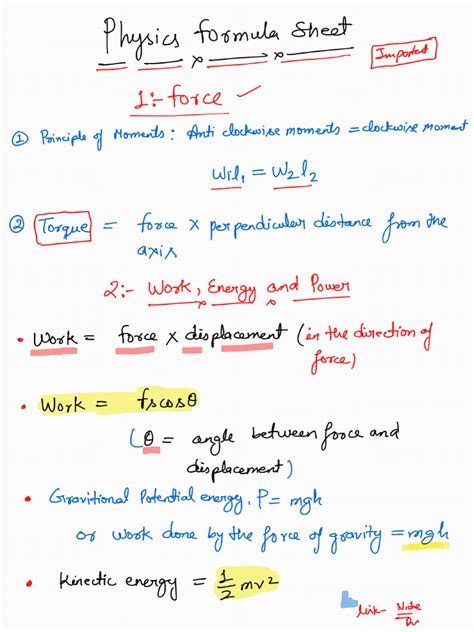 Physics formula Sheet
Important
1:- force ✓
① Principle of Moments : Anti clockwise moments = clockwise moment
W₁l₁ = W₂l₂
② Torque = force × perpendicular distance from the
axis
2:- Work, Energy and Power
• Work = force × displacement (in the direction of
force)
• Work = fscosθ
(θ = angle between force and
displacement)
• Gravitional Potential energy, P = mgh
or work done by the force of gravity = mgh
• Kinetic energy = 1/2 mv²
link-